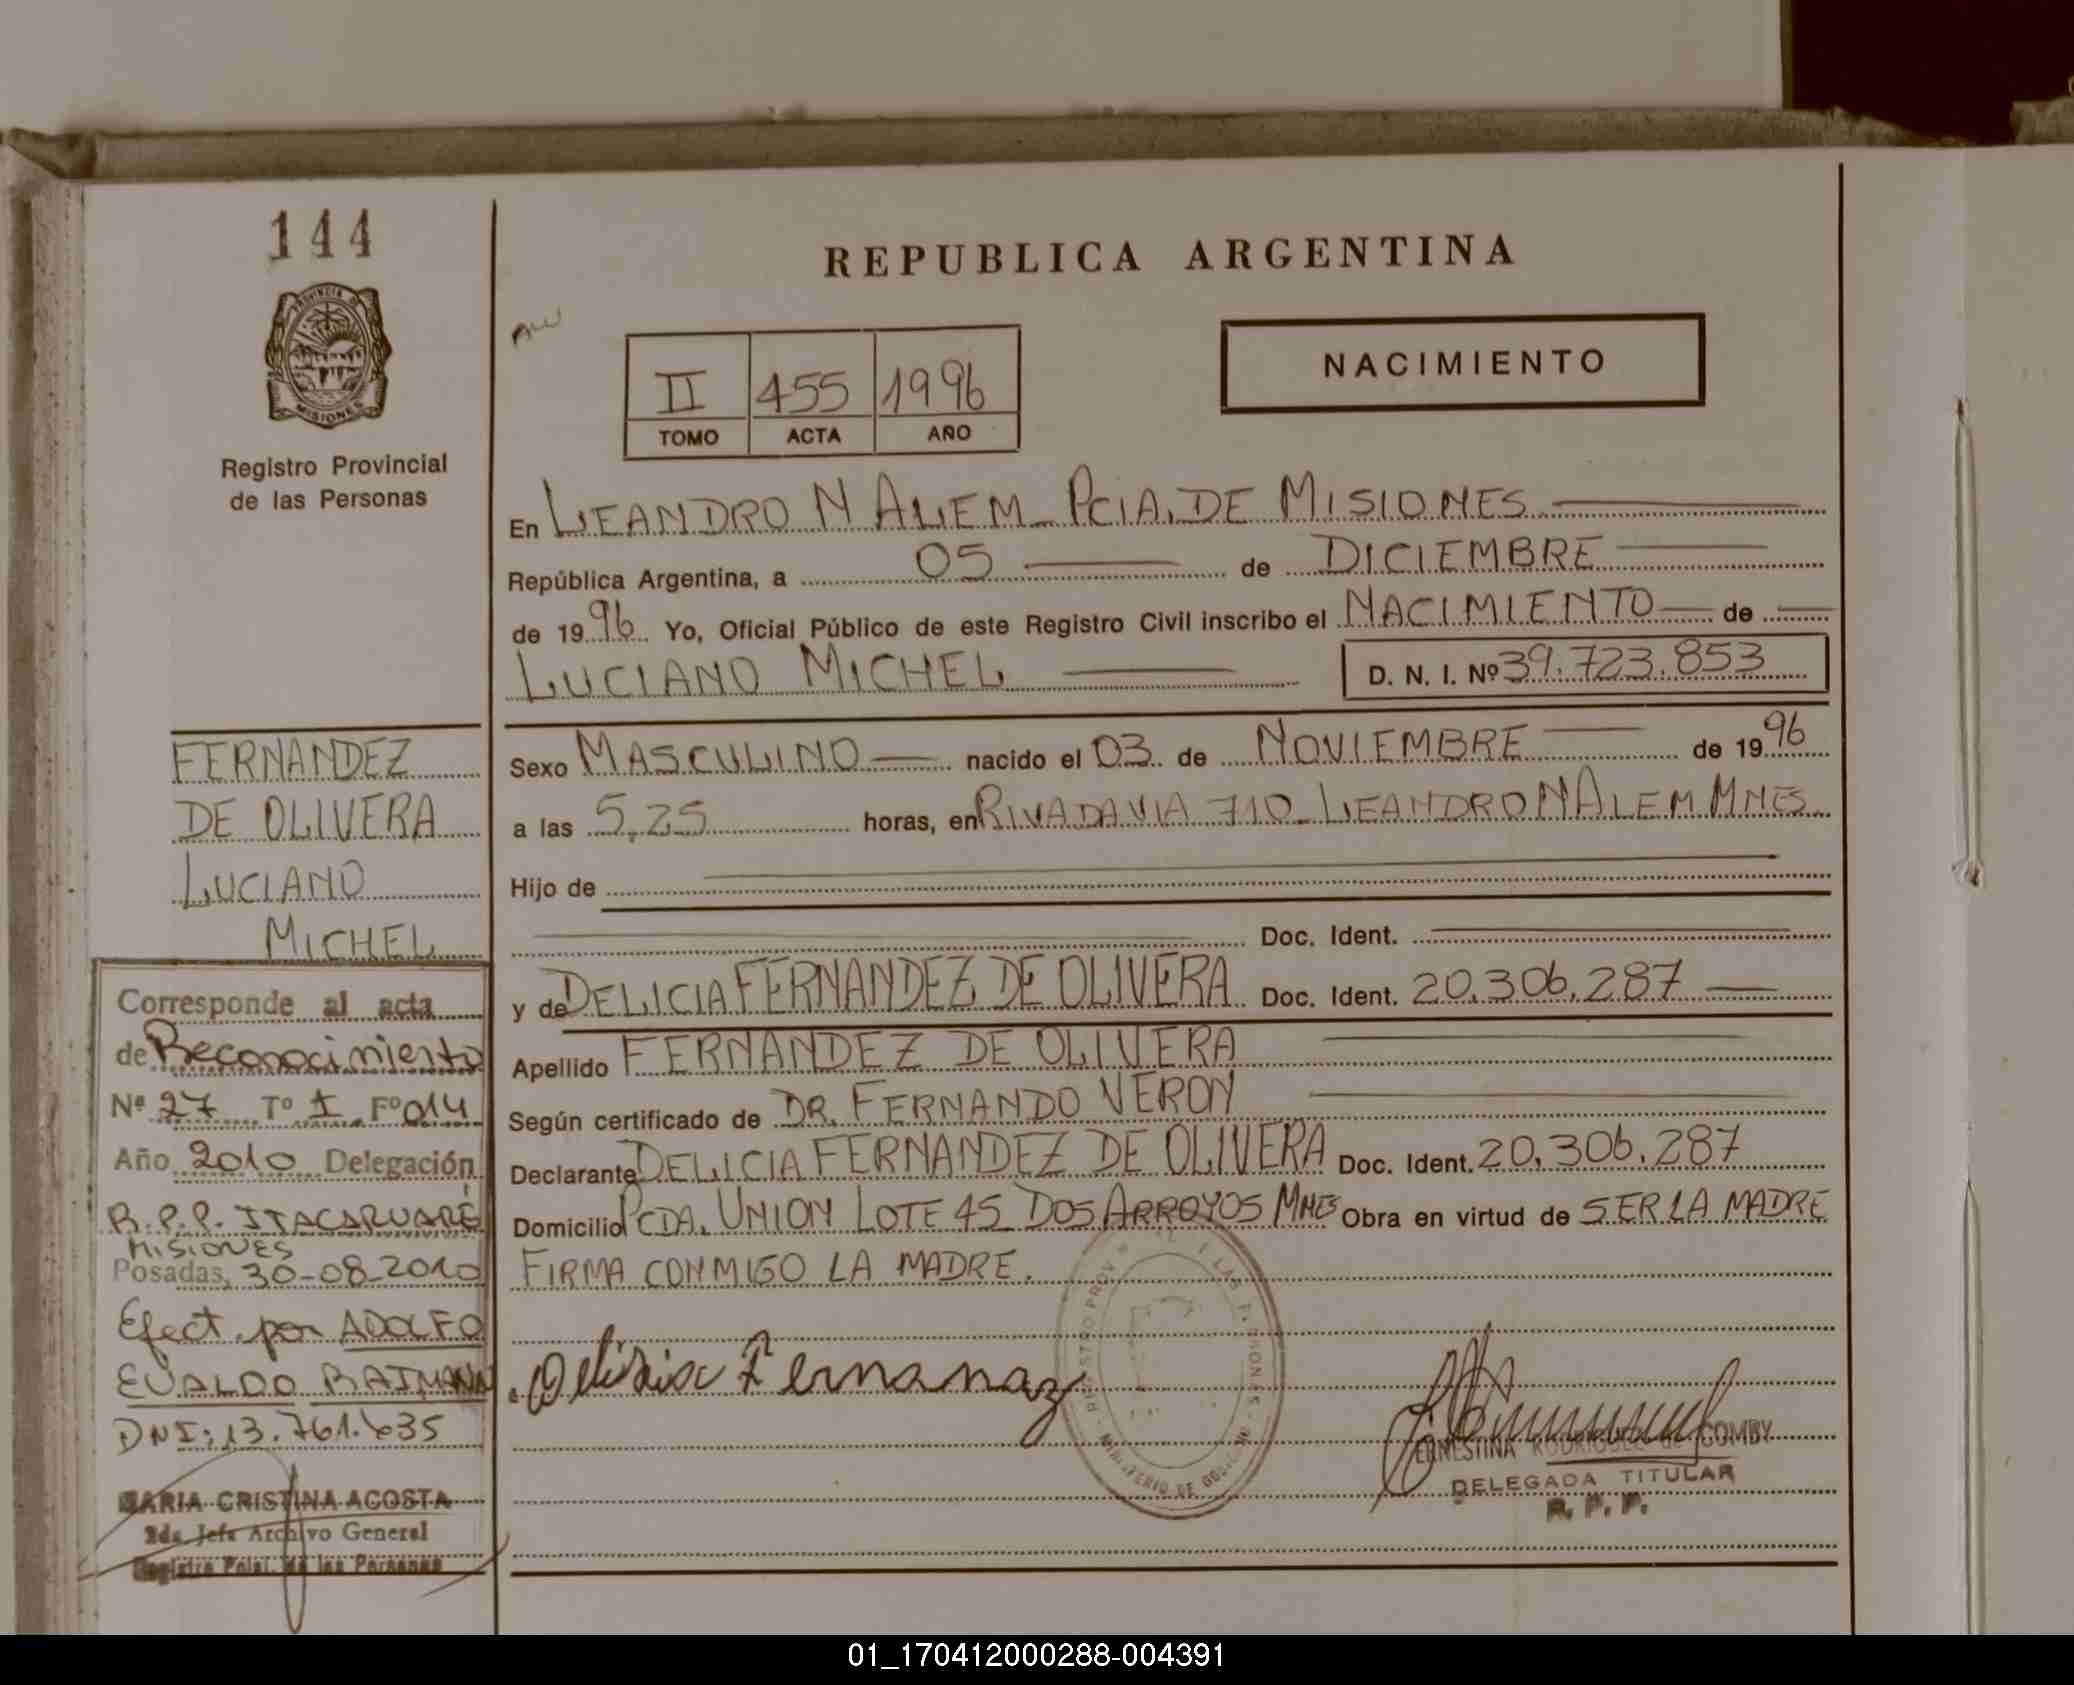 144
REPUBLICA ARGENTINA
PROVINCIA DE
MISIONES
Registro Provincial
de las Personas
II 455 1996
TOMO ACTA AÑO
NACIMIENTO
En LEANDRO N ALEM - PCIA. DE MISIONES
República Argentina, a 05 de DICIEMBRE
de 1996 Yo, Oficial Público de este Registro Civil inscribo el NACIMIENTO de
LUCIANO MICHEL D. N. I. Nº 39.723.853
Sexo MASCULINO nacido el 03 de NOVIEMBRE de 1996
a las 5,25 horas, en RIVADAVIA 710 - LEANDRO N ALEM MNES
Hijo de
Doc. Ident.
y de DELICIA FERNANDEZ DE OLIVERA Doc. Ident. 20.306.287
Apellido FERNANDEZ DE OLIVERA
Según certificado de DR. FERNANDO VERON
Declarante DELICIA FERNANDEZ DE OLIVERA Doc. Ident. 20.306.287
Domicilio PCDA. UNION LOTE 45 DOS ARROYOS MNES Obra en virtud de SER LA MADRE
FIRMA CONMIGO LA MADRE.
ERNESTINA RODRIGUEZ de GOMBY
DELEGADA TITULAR
R. P. P.
FERNANDEZ
DE OLIVERA
LUCIANO
MICHEL
Corresponde al acta
de Reconocimiento
Nº 27 Tº I Fº 014
Año 2010 Delegación
R.P.P. ITACARUARÉ
MISIONES
Posadas, 30-08-2010
Efect. por ADOLFO
EVALDO RAIMANN
DNI: 13.761.635
MARIA CRISTINA ACOSTA
2da. Jefe Archivo General
Registro Pcial. de las Personas
01_170412000288-004391